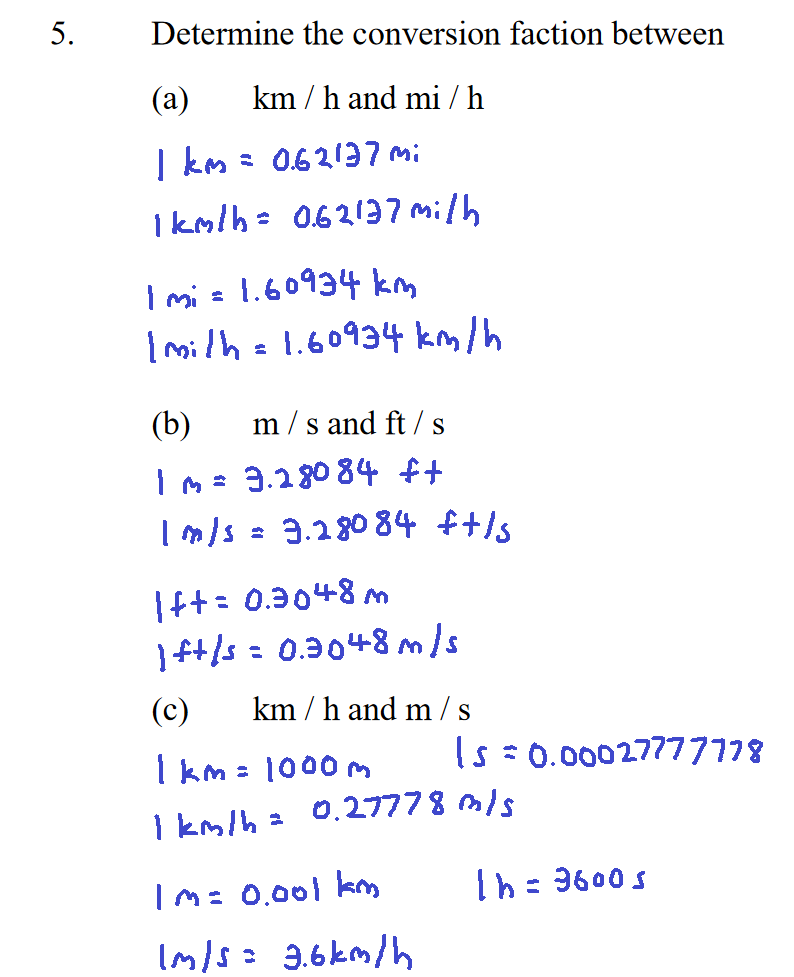 5. Determine the conversion faction between
(a) km / h and mi / h
1 km = 0.62137 mi
1 km/h = 0.62137 mi/h
1 mi = 1.60934 km
1 mi/h = 1.60934 km/h
(b) m / s and ft / s
1 m = 3.28084 ft
1 m/s = 3.28084 ft/s
1 ft = 0.3048 m
1 ft/s = 0.3048 m/s
(c) km / h and m / s
1 km = 1000 m 1 s = 0.00027777778
1 km/h = 0.27778 m/s
1 m = 0.001 km 1 h = 3600 s
1 m/s = 3.6 km/h